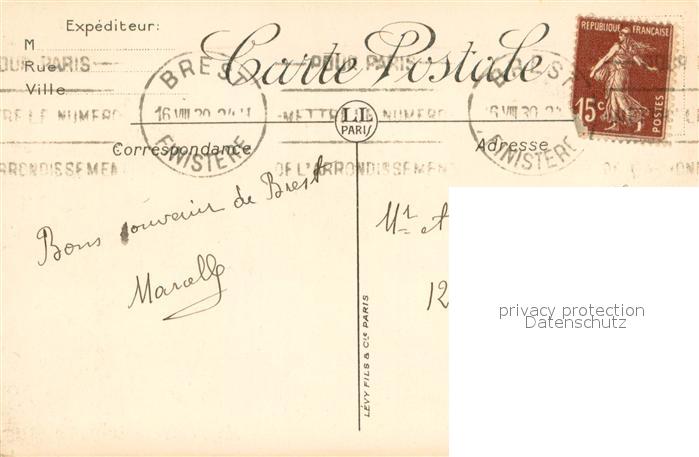 Expéditeur:
M
Rue
Ville
Carte Postale
RÉPUBLIQUE FRANÇAISE
15c
POSTES
POUR PARIS
METTRE LE NUMERO
DE L'ARRONDISSEMENT
BREST
16 VIII 30
FINISTERE
BREST
FINISTERE
LL
PARIS
Correspondance
Adresse
Bons souvenir de Brest
Marcelle
Mr et
12
LÉVY FILS & Cie PARIS
privacy protection
Datenschutz